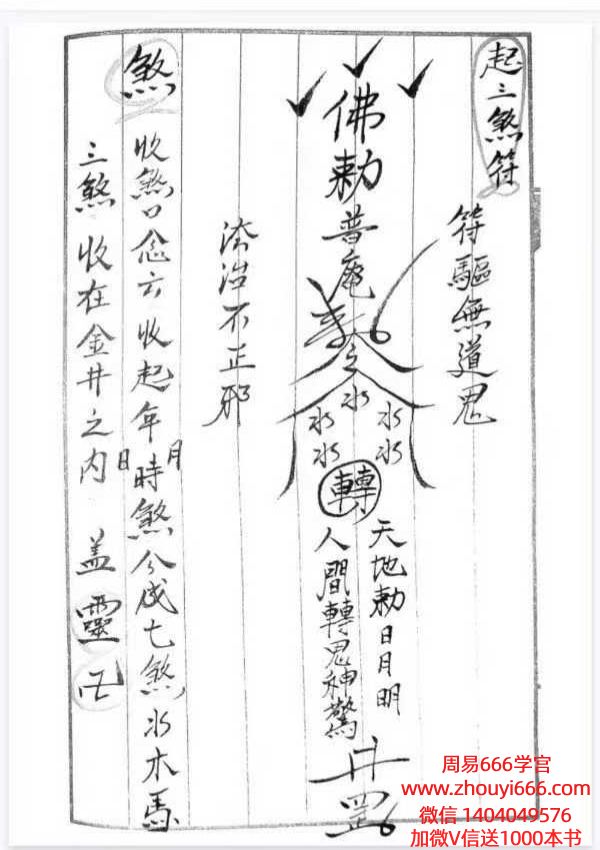 起三煞符
符驅無道鬼
佛勅普庵
水
水水
水水
轉
天地勅日月明
人間轉鬼神驚
井罡
法治不正邪
煞
收煞口念云收起年月日時煞分成七煞水木馬
三煞收在金井之內 盖靈
周易666学官
www.zhouyi666.com
微信 1404049576
加微V信送1000本书